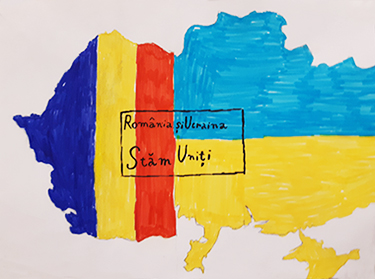 România și Ucraina
Stăm Uniți